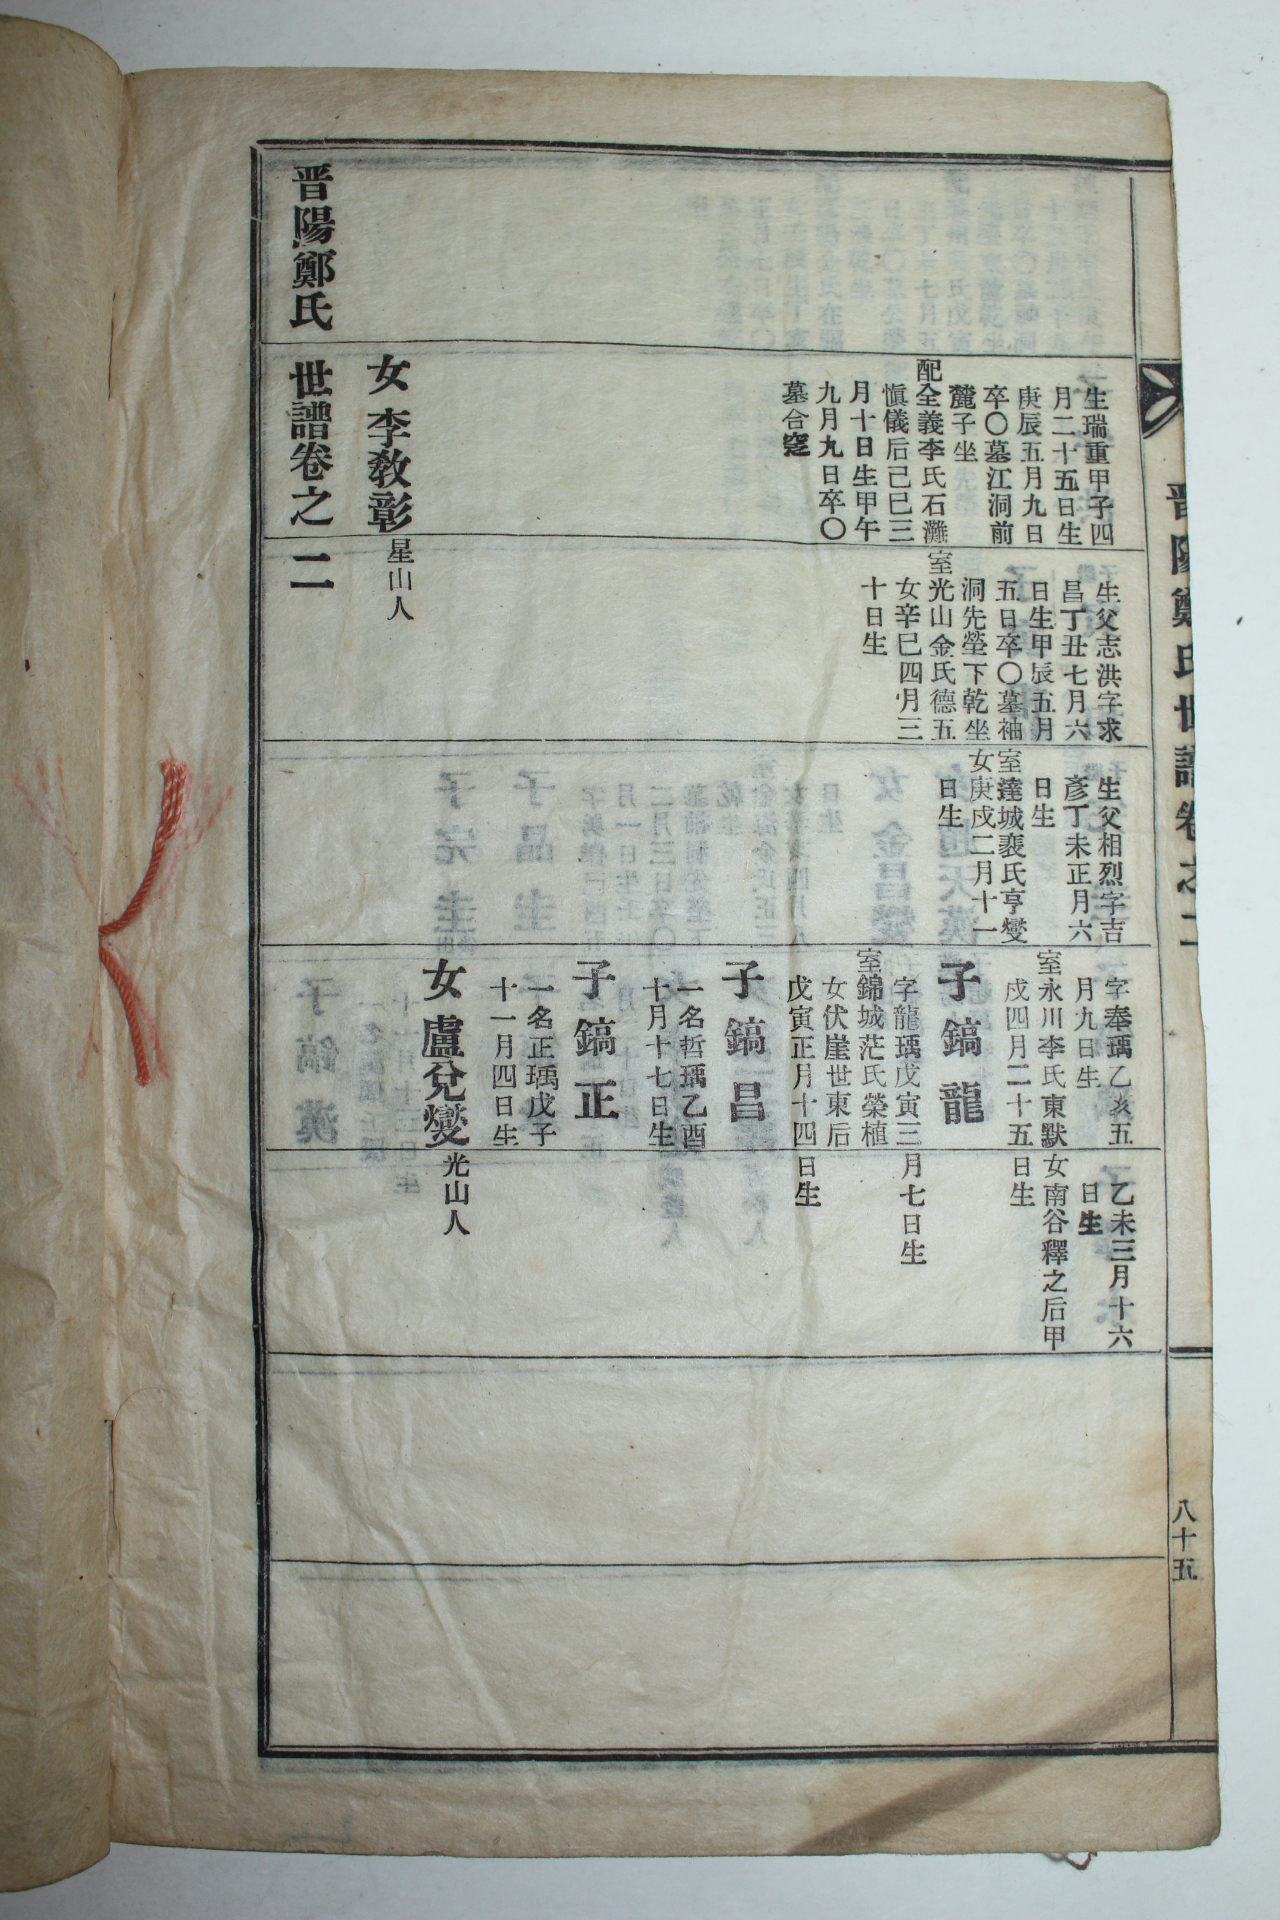 晋陽鄭氏世譜卷之二
八十五
生瑞重甲子四
月二十五日生
庚辰五月九日
卒〇墓江洞前
麓子坐
配全義李氏石灘
愼儀后己巳三
月十日生甲午
九月九日卒〇
墓合窆
女 李教彰
星山人
生父志洪字求
昌丁丑七月六
日生甲辰五月
五日卒〇墓袖
洞先塋下乾坐
室光山金氏德五
女辛巳四月三
十日生
生父相烈字吉
彥丁未正月六
日生
室達城裵氏亨燮
女庚戌二月十一
日生
字奉瑀乙亥五
月九日生
室永川李氏東默
戌四月二十五
子 鎬 龍
字龍瑀戊寅三
月七日生
室錦城茫氏榮植
女伏崖世東后
戊寅正月十四
日生
子 鎬 昌
一名哲瑀乙酉
十月十七日生
子 鎬 正
一名正瑀戊子
十一月四日生
女 盧兌燮
光山人
乙未三月十六
日生
女南谷釋之后甲
日生
晋陽鄭氏 世譜卷之二